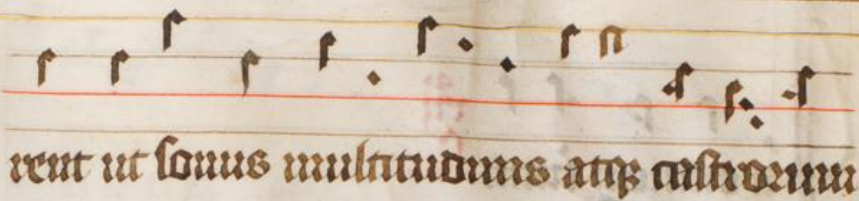 rent ut sonus multitudinis atqꝫ castrorum